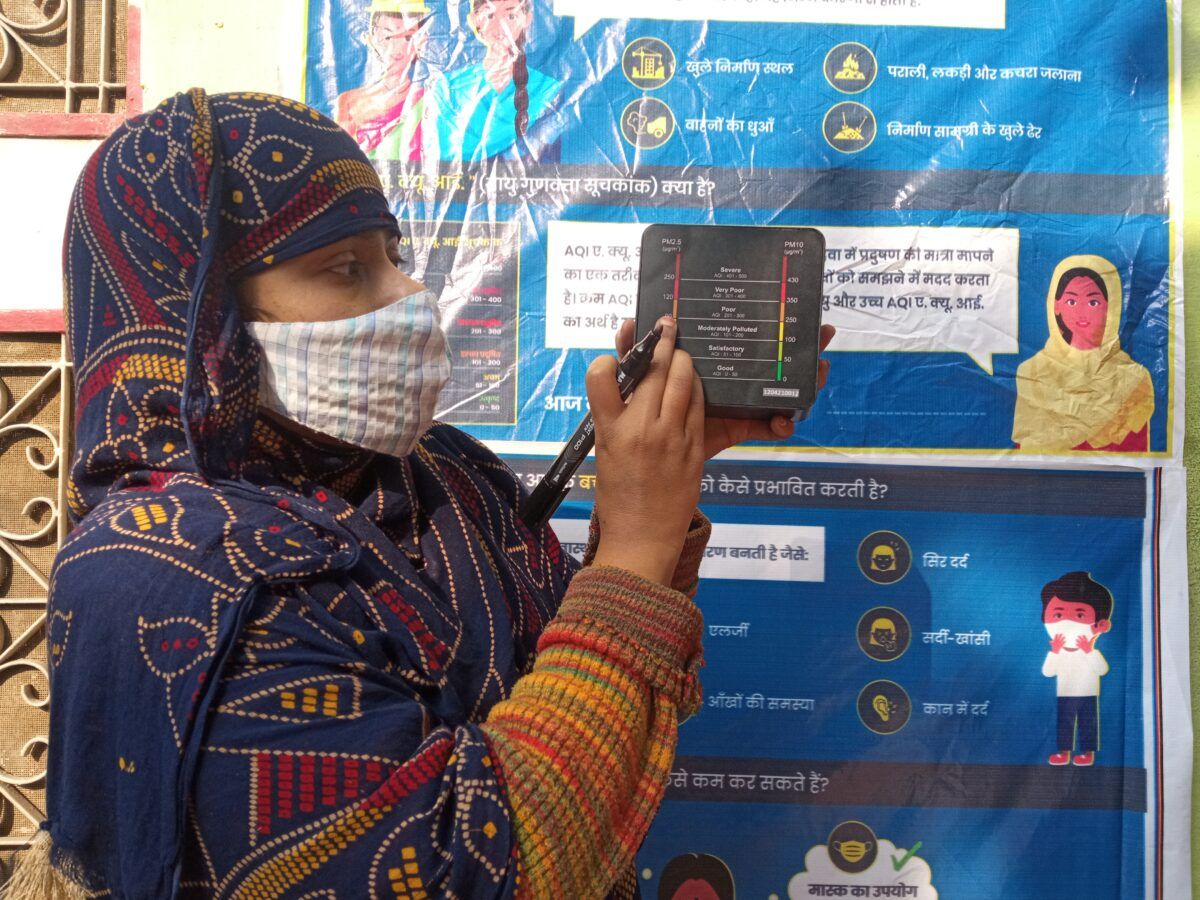 खुले निर्माण स्थल
पराली, लकड़ी और कचरा जलाना
वाहनों का धुआँ
निर्माण सामग्री के खुले ढेर
क्यू. आई. " (वायु गुणवत्ता सूचकांक) क्या है?
301 - 400
201 - 300
101 - 200
51 - 100
0 - 50
AQI ए. क्यू.
में प्रदुषण की मात्रा मापने
का एक
को समझने में मदद करता
है। कम AQI
और उच्च AQI ए. क्यू. आई.
का अर्थ है
आज
PM2.5
(µg/m³)
PM10
(µg/m³)
Severe
AQI : 401 - 500
250
430
Very Poor
AQI : 301 - 400
120
350
Poor
AQI : 201 - 300
250
Moderately Polluted
AQI : 101 - 200
100
Satisfactory
AQI : 51 - 100
50
Good
AQI : 0 - 50
0
1204210012
को कैसे प्रभावित करती है?
बनती है जैसे:
सिर दर्द
एलर्जी
सर्दी-खांसी
आँखों की समस्या
कान में दर्द
कम कर सकते हैं?
मास्क का उपयोग